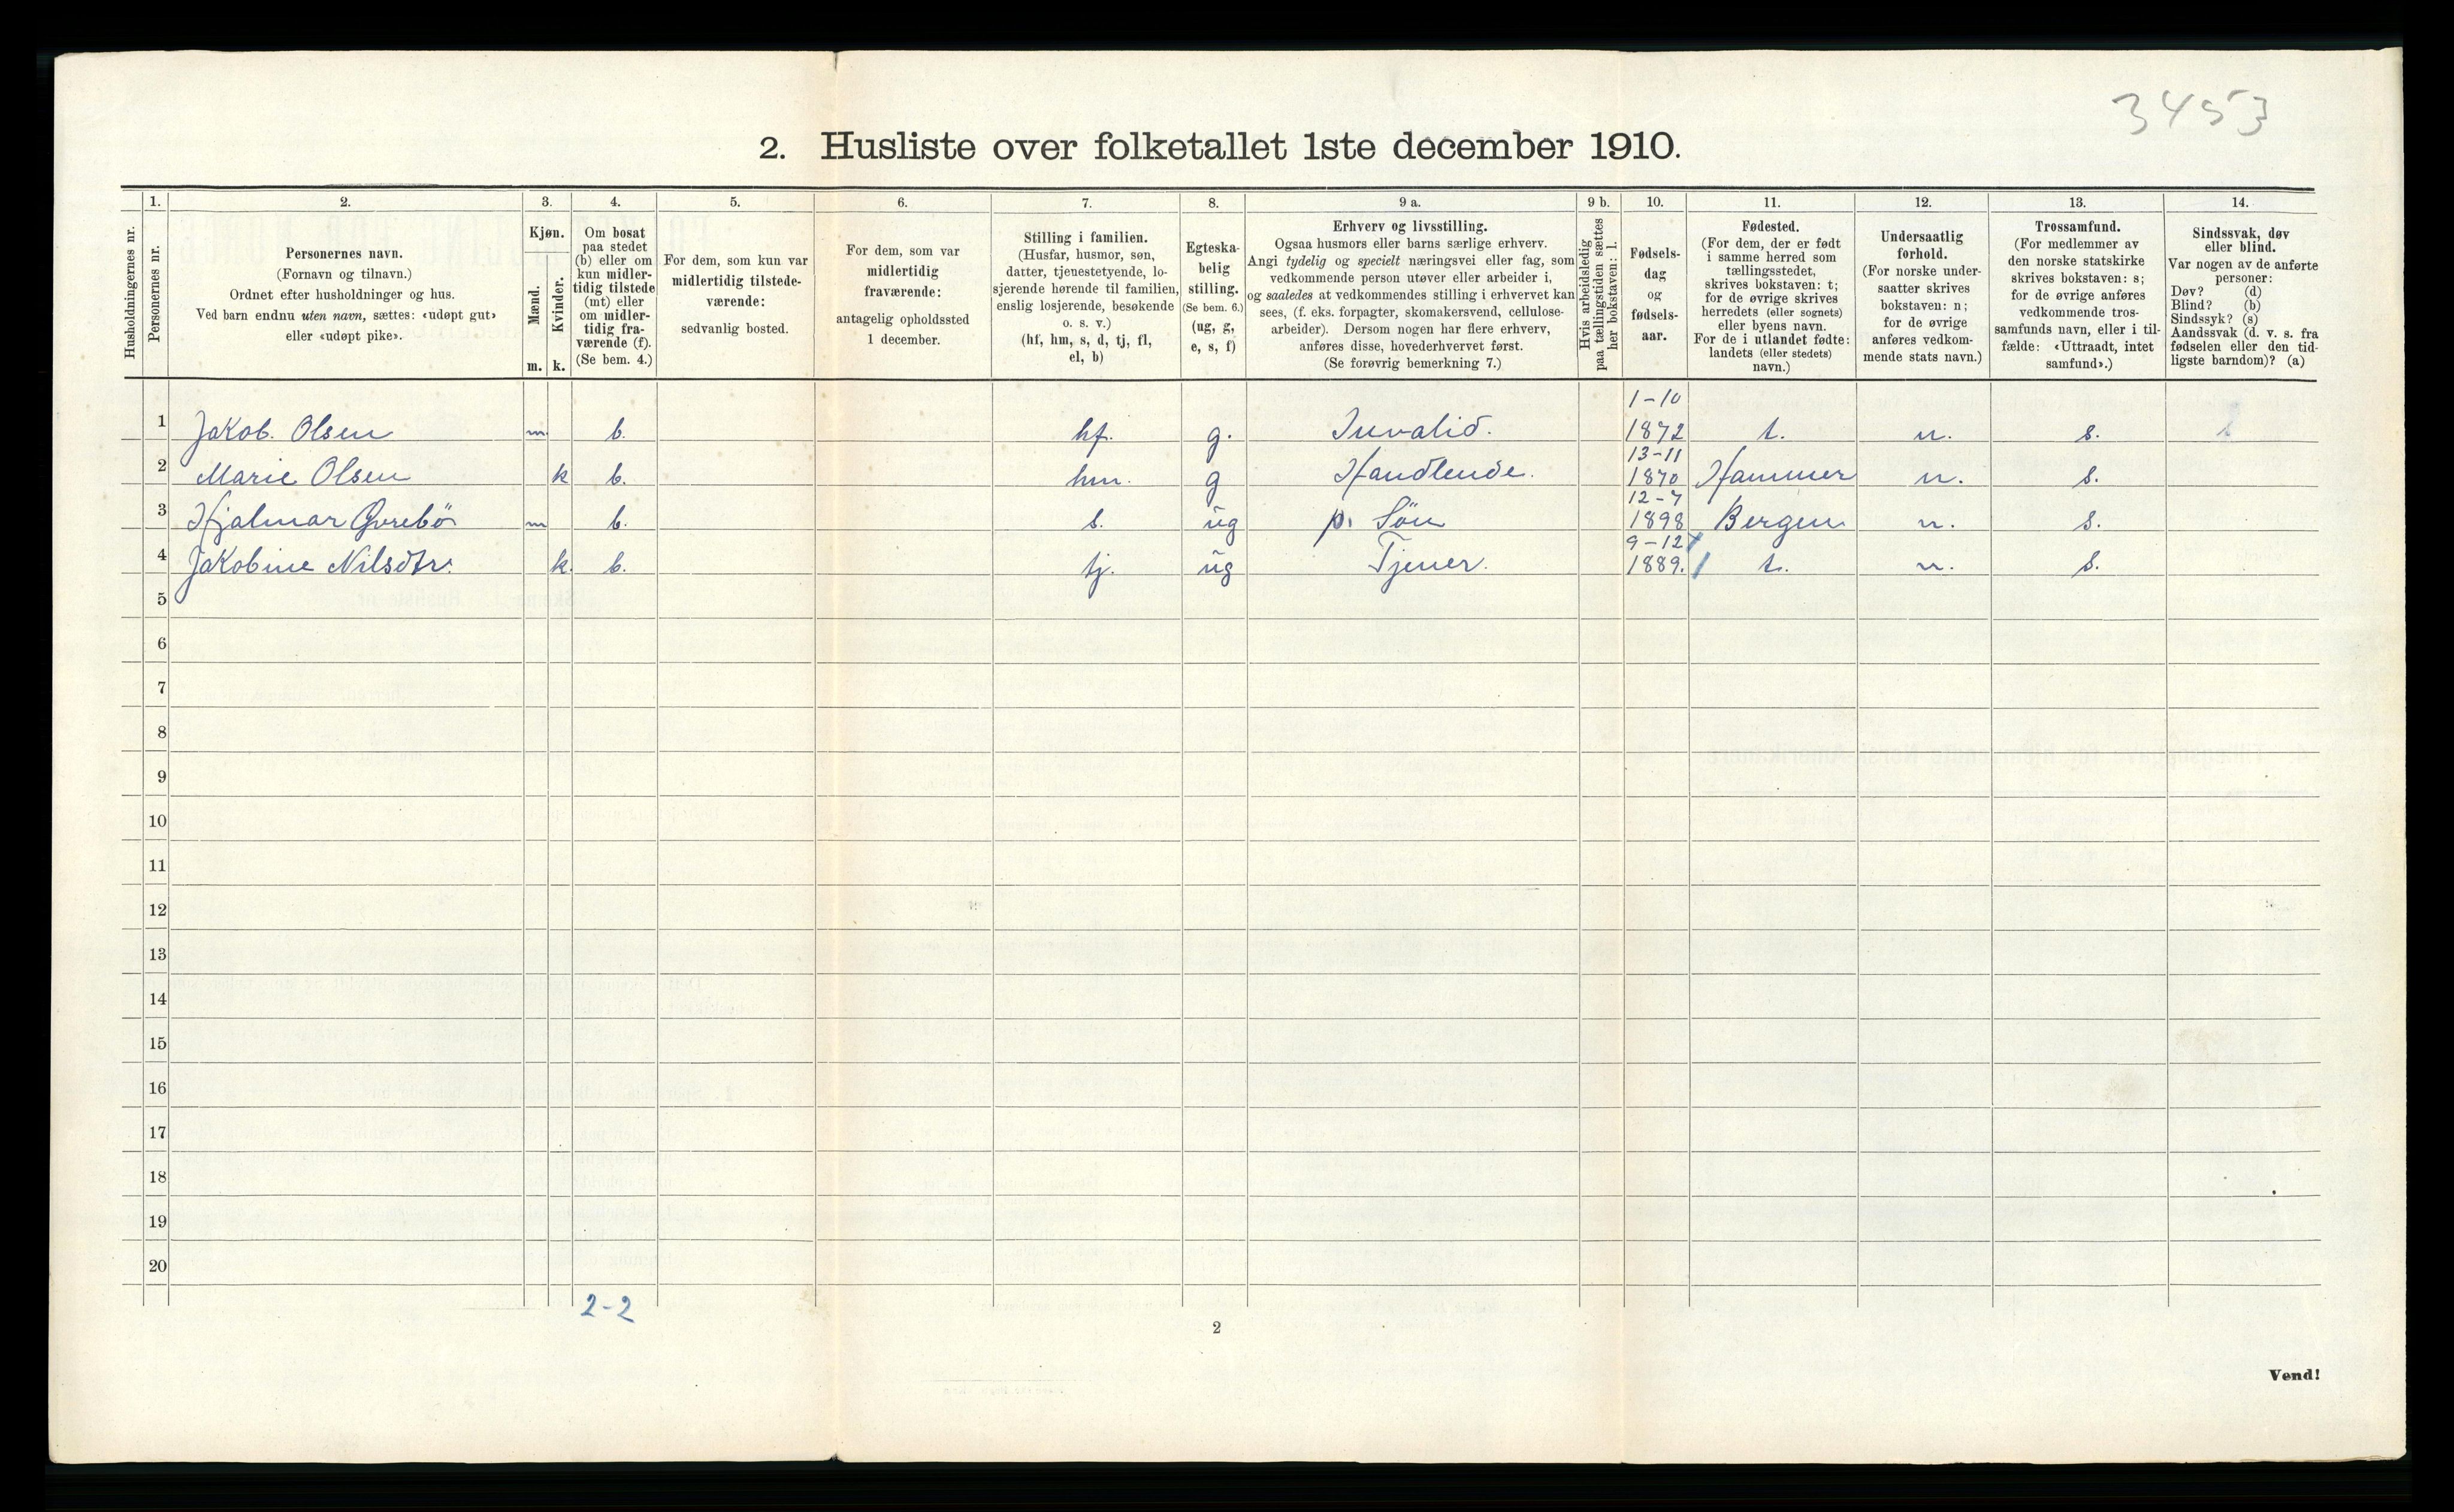 3453
2. Husliste over folketallet 1ste december 1910.
Husholdningernes nr.
1.
Personernes nr.
2.
Personernes navn.
(Fornavn og tilnavn.)
Ordnet efter husholdninger og hus.
Ved barn endnu uten navn, sættes: «udøpt gut»
eller «udøpt pike».
3.
Kjøn.
Mænd.
m.
Kvinder.
k.
4.
Om bosat
paa stedet
(b) eller om
kun midler-
tidig tilstede
(mt) eller
om midler-
tidig fra-
værende (f).
(Se bem. 4.)
5.
For dem, som kun var
midlertidig tilstede-
værende:
sedvanlig bosted.
6.
For dem, som var
midlertidig
fraværende:
antagelig opholdssted
1 december.
7.
Stilling i familien.
(Husfar, husmor, søn,
datter, tjenestetyende, lo-
sjerende hørende til familien,
enslig losjerende, besøkende
o. s. v.)
(hf, hm, s, d, tj, fl,
el, b)
8.
Egteska-
belig
stilling.
(Se bem. 6.)
(ug, g,
e, s, f)
9 a.
Erhverv og livsstilling.
Ogsaa husmors eller barns særlige erhverv.
Angi tydelig og specielt næringsvei eller fag, som
vedkommende person utøver eller arbeider i,
og saaledes at vedkommendes stilling i erhvervet kan
sees, (f. eks. forpagter, skomakersvend, cellulose-
arbeider). Dersom nogen har flere erhverv,
anføres disse, hovederhvervet først.
(Se forøvrig bemerkning 7.)
9 b.
Hvis arbeidsledig
paa tællingstiden sættes
her bokstaven: l.
10.
Fødsels-
dag
og
fødsels-
aar.
11.
Fødested.
(For dem, der er født
i samme herred som
tællingsstedet,
skrives bokstaven: t;
for de øvrige skrives
herredets (eller sognets)
eller byens navn.
For de i utlandet fødte:
landets (eller stedets)
navn.)
12.
Undersaatlig
forhold.
(For norske under-
saatter skrives
bokstaven: n;
for de øvrige
anføres vedkom-
mende stats navn.)
13.
Trossamfund.
(For medlemmer av
den norske statskirke
skrives bokstaven: s;
for de øvrige anføres
vedkommende tros-
samfunds navn, eller i til-
fælde: «Uttraadt, intet
samfund».)
14.
Sindssvak, døv
eller blind.
Var nogen av de anførte
personer:
Døv? (d)
Blind? (b)
Sindssyk? (s)
Aandssvak (d. v. s. fra
fødselen eller den tid-
ligste barndom)? (a)
1 Jakob. Olsen m b. hf. g. Invalid. 1-10 1872 t. n. s.
2 Marie Olsen k b. hm. g Handlende. 13-11 1870 Hammer n. s.
3 Hjalmar Øvrebö m b. s. ug p. Sön 12-7 1898 Bergen n. s.
4 Jakobine Nilsdtr. k. b. tj. ug Tjener. 9-12 1889. t. n. s.
5
6
7
8
9
10
11
12
13
14
15
16
17
18
19
20
2-2
2
Vend!